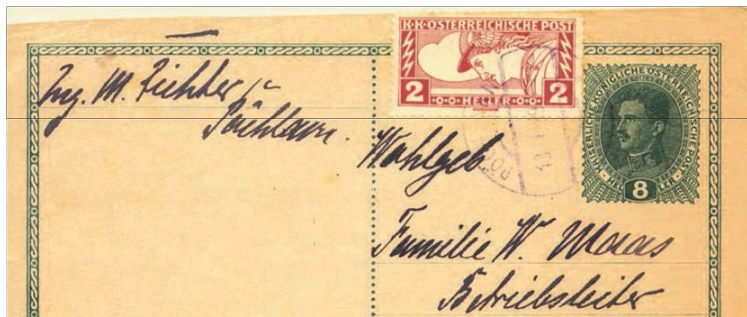 Ing. M. Richter
Pöchlarn.
K.K. OSTERREICHISCHE POST
2 HELLER 2
KAISERLICHE KÖNIGLICHE ÖSTERREICHISCHE POST
8
Wohlgeb
Familie W. Maas
Betriebsleiter